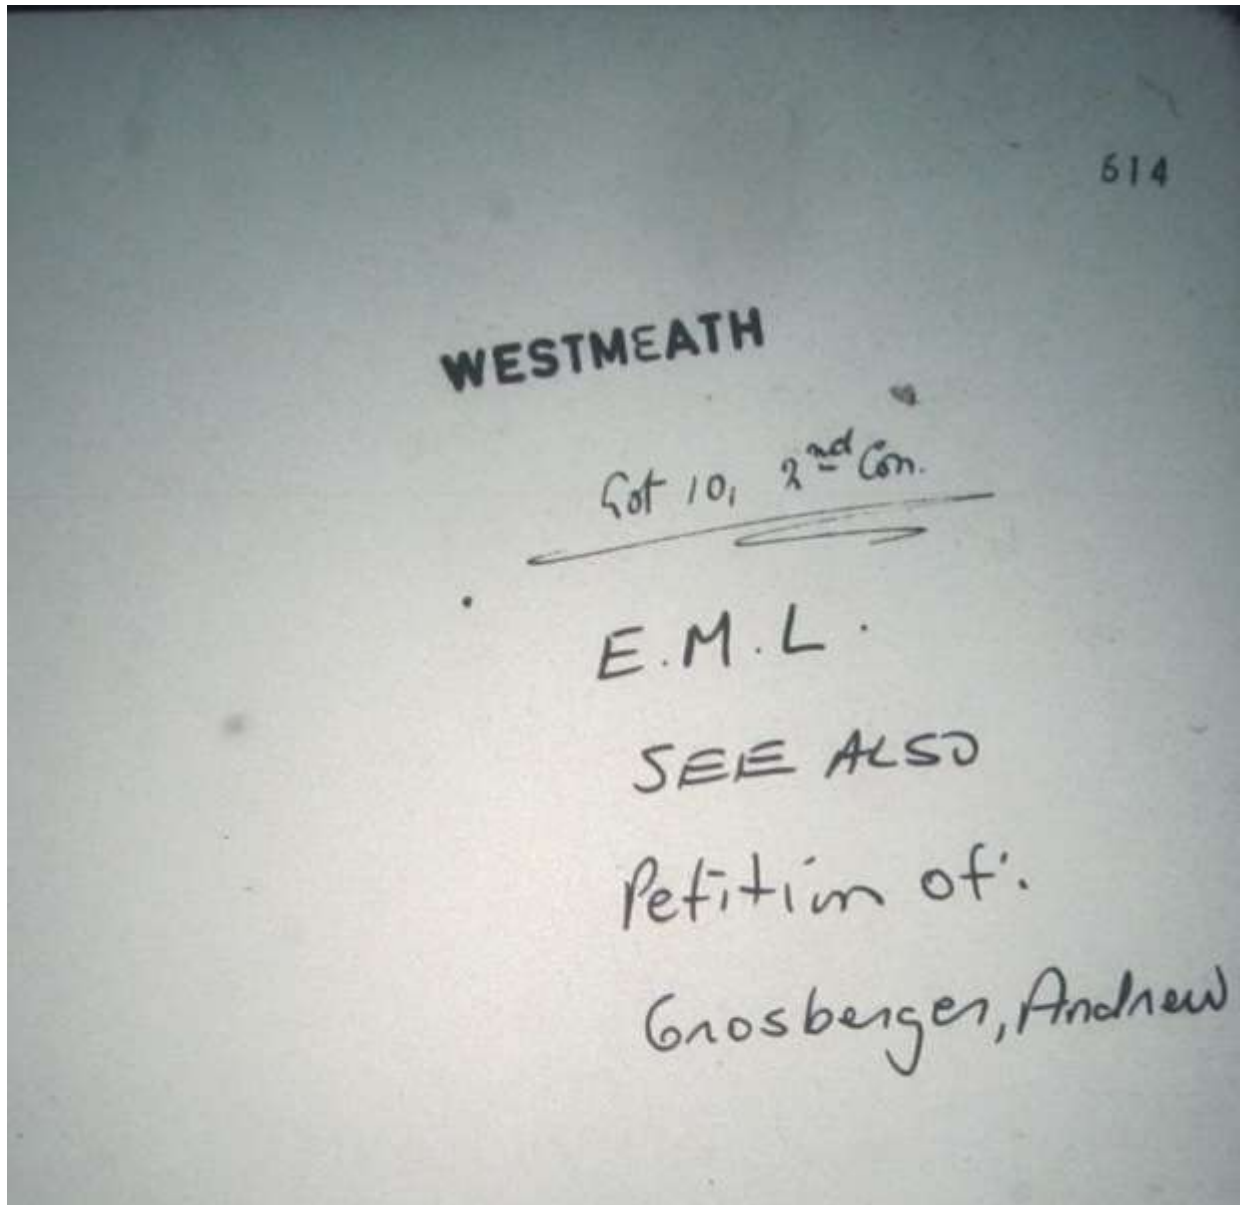 614
WESTMEATH
Lot 10, 2nd Con.
E.M.L.
SEE ALSO
Petition of:
Grosberger, Andrew